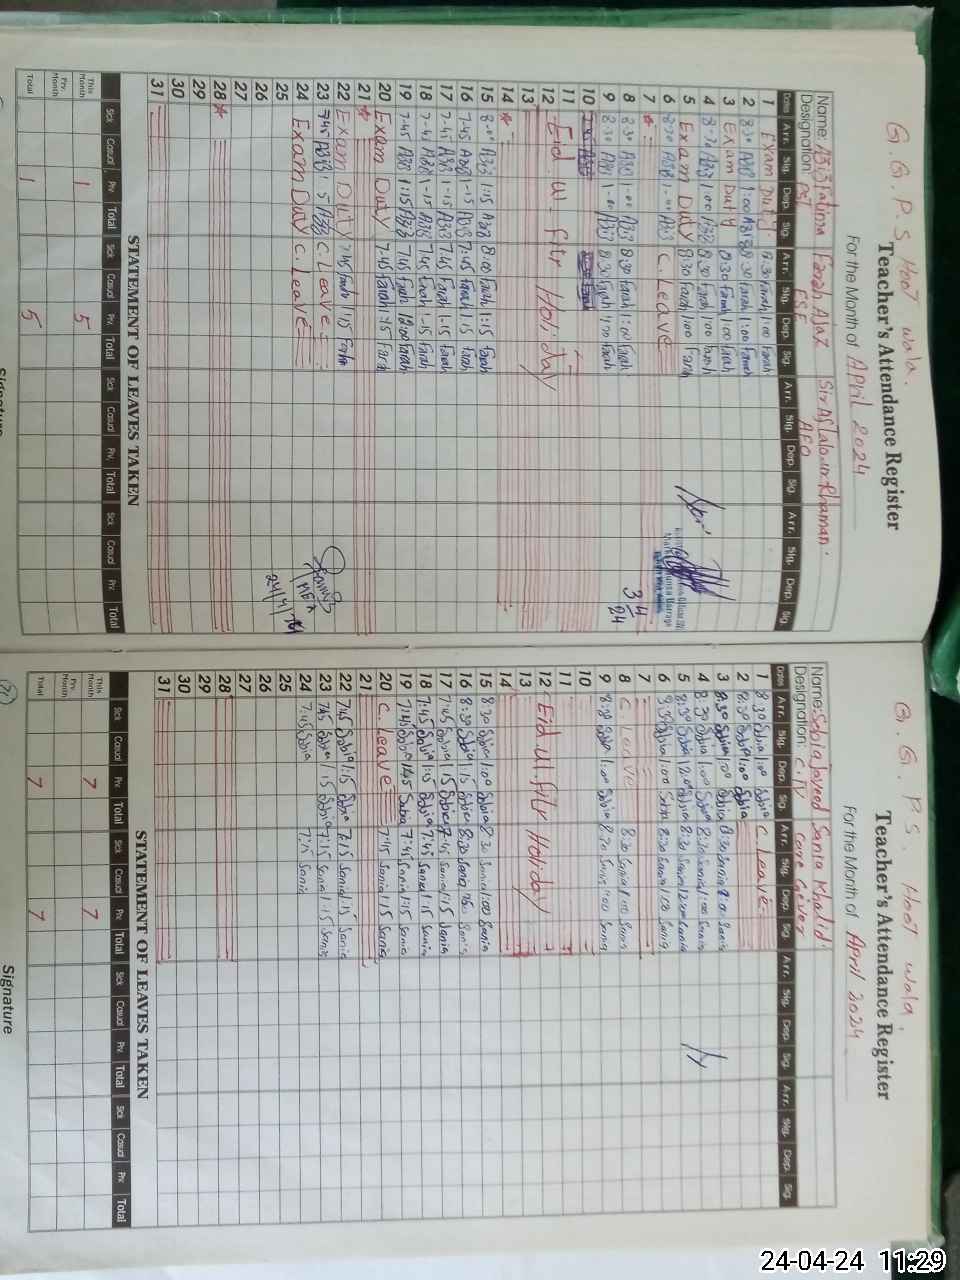 G. G. P. S Hoot wala.
Teacher's Attendance Register
For the Month of APril 2024
Name: Fatima Farah Aiaz Sir Aftab.ur.Rhaman.
Designation: PST ESE AEO
Dates Arr. Sig. Dep. Sig. Arr. Sig. Dep. Sig. Arr. Sig. Dep. Sig. Arr. Sig. Dep. Sig.
1 Exam Duty 8.30 Farah 1:00 Farah
2 8:30 1:00 8:30 Farah 1:00 Farah
3 Exam Duty 8:30 Farah 1:00 Farah
4 8:30 1:00 8:30 Farah 1:00 Farah
5 Exam Duty 8:30 Farah 1:00 Farah
6 8:30 1:00 C. Leave
7 *
8 8:30 1:00 8:30 Farah 1:00 Farah
9 8:30 1:00 8:30 Farah 1:00 Farah
10
11
12 Eid ul fitr Holiday
13
14 *
15 8:00 1:15 8:00 Farah 1:15 Farah
16 7:45 1-15 7:45 Farah 1:15 Farah
17 7:45 1-15 7:45 Farah 1-15 Farah
18 7:45 1-15 7:45 Farah 1-15 Farah
19 7:45 1:15 7:45 Farah Farah
20 Exam Duty 7:45 Farah 1:15 Farah
21 *
22 Exam Duty 7:45 Farah 1:15 Farah
23 7:45 C. Leave
24 Exam Duty C. Leave
25
26
27
28 *
29
30
31
34/24
24/4/24
STATEMENT OF LEAVES TAKEN
Sick Casual Prv. Total Sick Casual Prv. Total Sick Casual Prv. Total Sick Casual Prv. Total
This Month 1 5
Prv. Month
Total 1 5
Signature
G. G. P. S. Hoot wala.
Teacher's Attendance Register
For the Month of April 2024
Name: Sobia Javeed Sania Khalid
Designation: C.IV Care Giver
Dates Arr. Sig. Dep. Sig. Arr. Sig. Dep. Sig. Arr. Sig. Dep. Sig. Arr. Sig. Dep. Sig.
1 8:30 Sobia 1:00 Sobia C. Leave
2 8:30 Sobia 1:00 Sobia
3 8:30 Sobia 1:00 Sobia 8:30 Sania 1:00 Sania
4 8:30 Sobia 1:00 Sobia 8:30 Sania 1:00 Sania
5 8:30 Sobia 12:00 Sobia 8:30 Sania 12:00 Sania
6 8:30 Sobia 1:00 Sobia 8:30 Sania 1:00 Sania
7
8 C. Leave 8:30 Sania 1:00 Sania
9 8:30 Sobia 1:00 Sobia 8:30 Sania 1:00 Sania
10
11
12 Eid.ul.fitr Holiday
13
14
15 8:30 Sobia 1:00 Sobia 8:30 Sania 1:00 Sania
16 8:30 Sobia 1:15 Sobia 8:30 Sania Sania
17 7:45 Sobia 1:15 Sobia 7:45 Sania 1:15 Sania
18 7:45 Sobia 1:15 Sobia 7:45 Sania 1:15 Sania
19 7:45 Sobia 1:45 Sobia 7:45 Sania 1:15 Sania
20 C. Leave 7:45 Sania 1:15 Sania
21
22 7:45 Sobia 1:15 Sobia 7:15 Sania 1:15 Sania
23 7:45 Sobia 1:15 Sobia 7:15 Sania 1:15 Sania
24 7:45 Sobia Sania
25
26
27
28
29
30
31
STATEMENT OF LEAVES TAKEN
Sick Casual Prv. Total Sick Casual Prv. Total Sick Casual Prv. Total Sick Casual Prv. Total
This Month 7 7
Prv. Month
Total 7 7
Signature
24-04-24 11:29